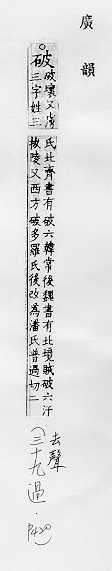 廣韻
破 破壞又虜
三字姓三
氏北齊書有破六韓常後魏書有北境賊破六汗
拔陵又西方破多羅氏後改為潘氏普過切二
去聲
(三十九過·P420)